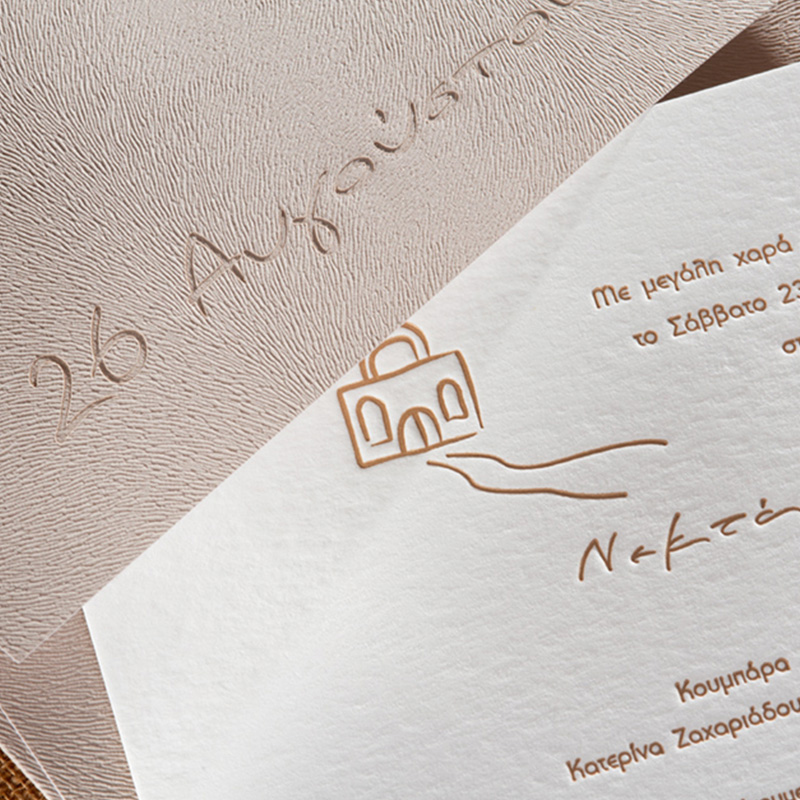 26 Αυγούστου
Με μεγάλη χαρά
το Σάββατο 23
Νεκτά
Κουμπάρα
Κατερίνα Ζαχαριάδου